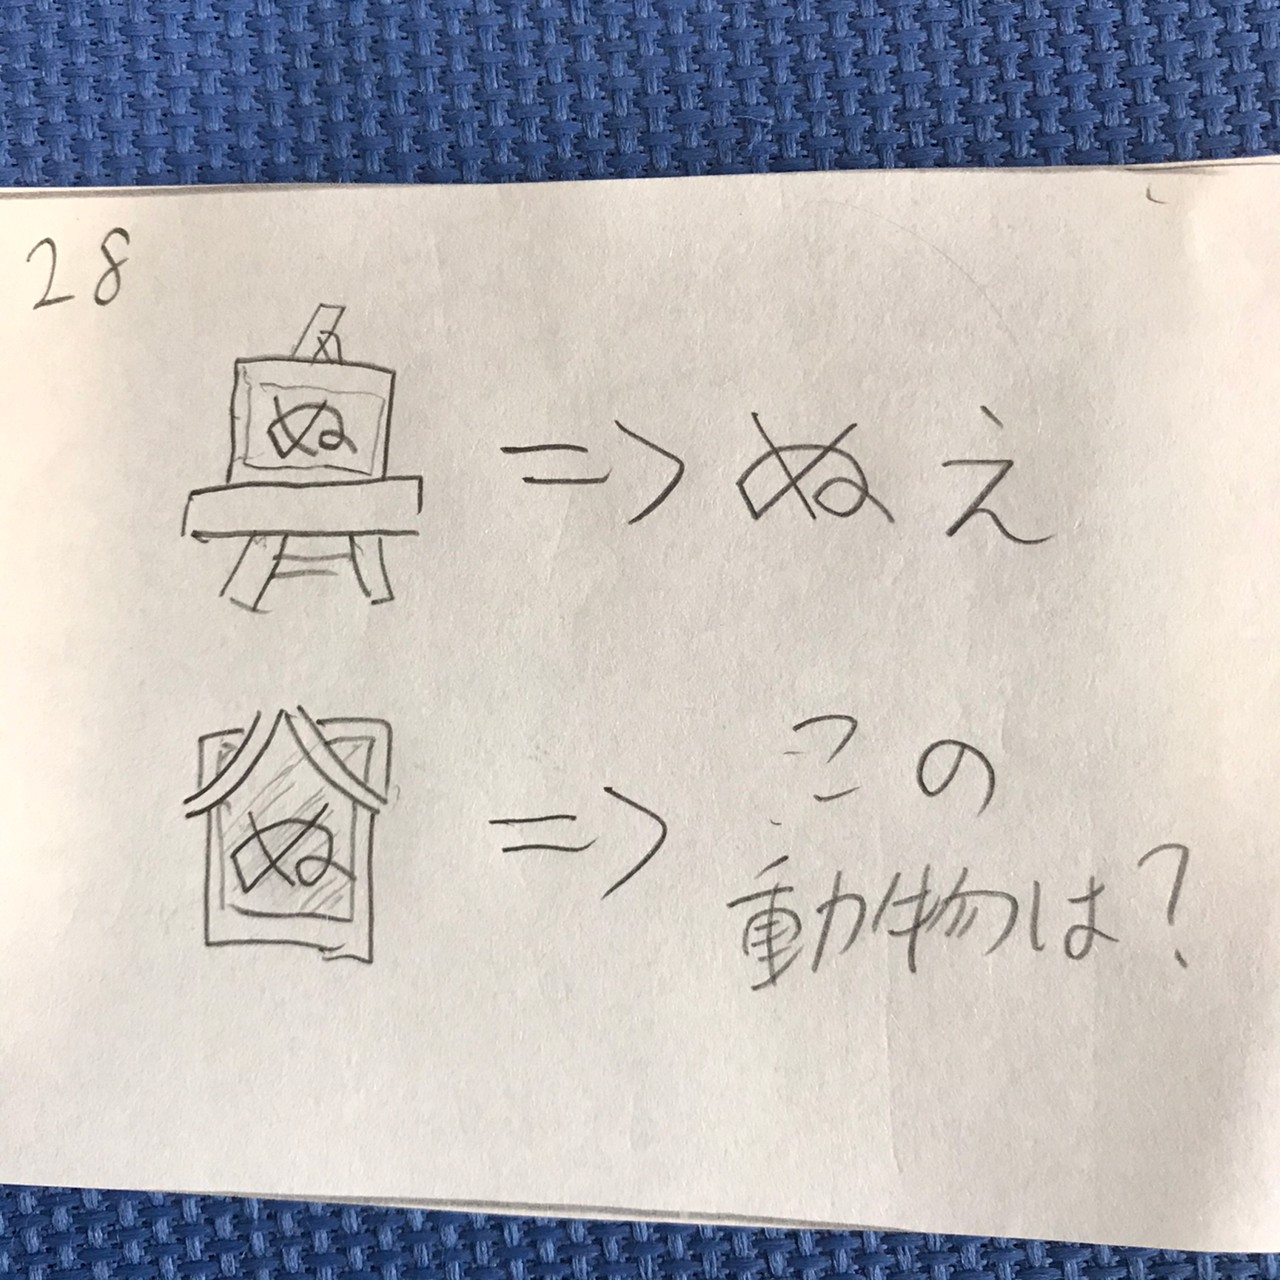 28
ぬ => ぬえ
ぬ => この
動物は?